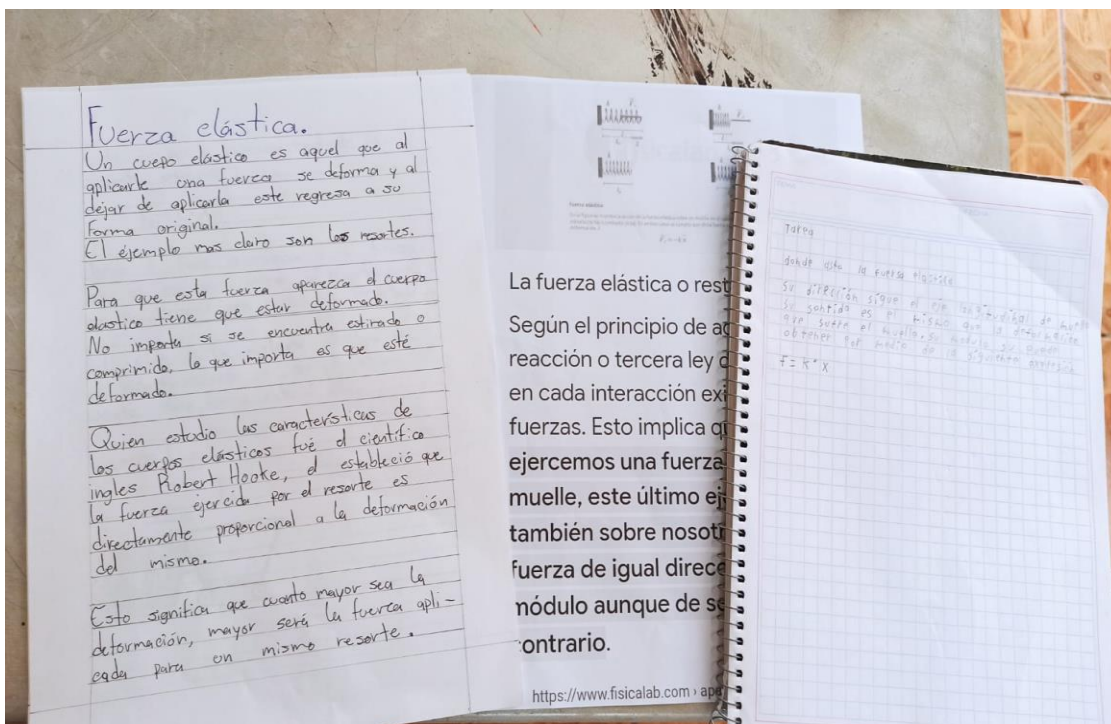 Fuerza elástica.
Un cuepo elastico es aquel que al
aplicarle una fuerza se deforma y al
dejar de aplicarla este regresa a su
forma original.
El ejemplo mas claro son los resortes.
Para que esta fuerza aparezca el cuerpo
elastico tiene que estar deformado.
No importa si se encuentra estirado o
comprimido, lo que importa es que esté
deformado.
Quien estudio las características de
los cuerpos elásticos fué el científico
ingles Robert Hooke, el estableció que
la fuerza ejercida por el resorte es
directamente proporcional a la deformación
del mismo.
Esto significa que cuanto mayor sea la
deformación, mayor será la fuerza apli-
cada para un mismo resorte.
Fuerza elástica
La fuerza elástica o rest
Según el principio de ac
reacción o tercera ley d
en cada interacción exi
fuerzas. Esto implica q
ejercemos una fuerza
muelle, este último ej
también sobre nosotr
fuerza de igual direcc
módulo aunque de se
contrario.
https://www.fisicalab.com › apa
Tarea
donde la fuerza elastica
Su dirección sigue el eje longitudinal de muelle
su sentido es el mismo que la deformación
que sufre el muelle, su modulo su puede
obtener por medio la siguiente
F = K * X